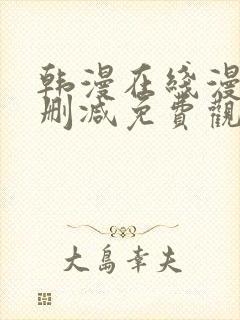 韩漫在线漫
删减免費觀
大島幸夫